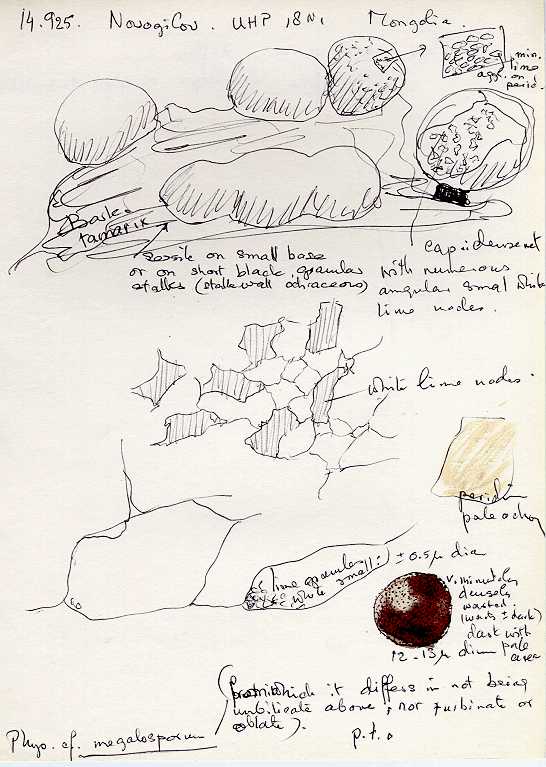 14.925. Novogilov. UHP 18N1 Mongolia.
min.
lime
agg. on
perid.
Bark
tamarix
sessile on small base
or on short black, granular
stalks (stalk wall ochraceous)
capill. dense net
with numerous
angular small white
lime nodes.
white lime nodes.
peridium
pale ochra
lime granules
white small: ± 0.5µ dia
v. minutely
densely
warted
(warts ± dark)
dark with
pale
area
12-13µ diam
(from which it differs in not being
umbilicate above, nor turbinate or
oblate).
Phys. cf. megalosporum
p.t.o